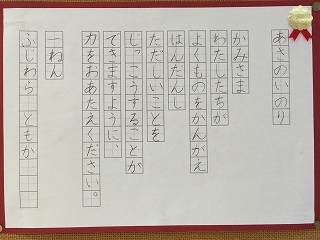 あさのいのり
かみさま
わたしたちが
よくものをかんがえ
はんたんし
ただしいことを
じっこうすることが
できますように、
力をおあたえください。
一ねん
ふじわら ともか